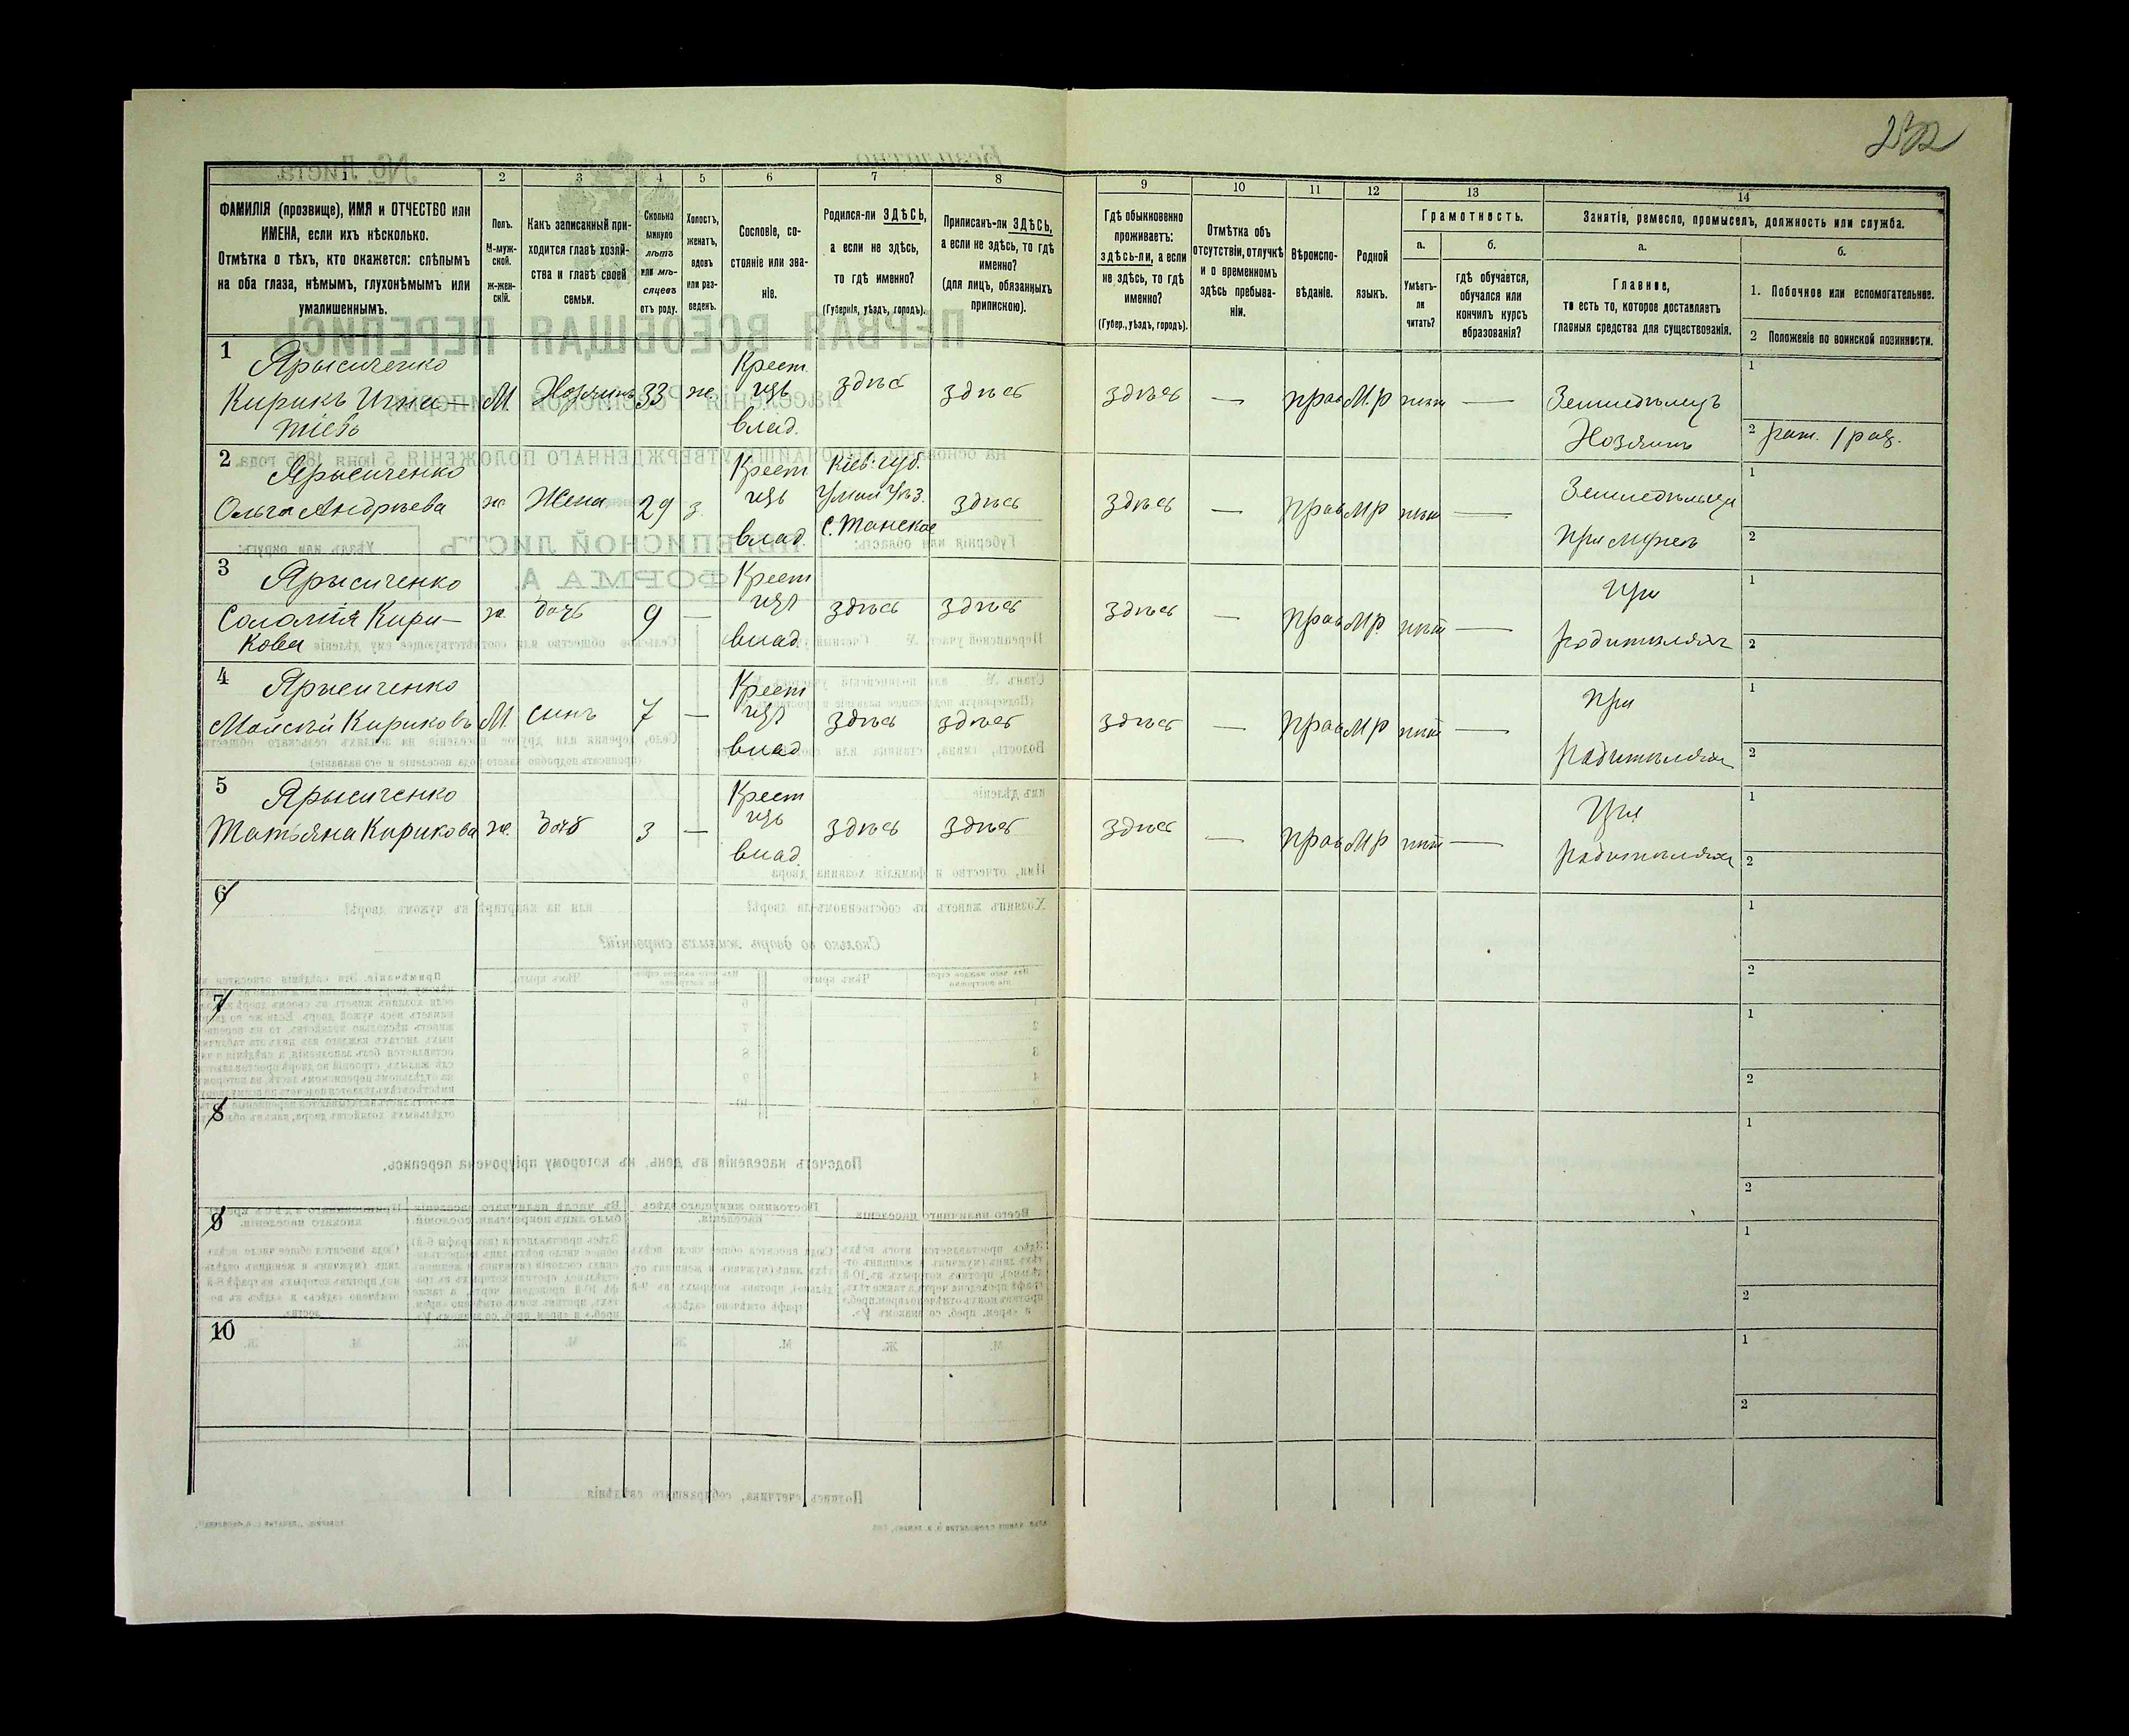 232
1
2
3
4
5
6
7
8
ФАМИЛІЯ (прозвище), ИМЯ и ОТЧЕСТВО или
ИМЕНА, если ихъ нѣсколько.
Отмѣтка о тѣхъ, кто окажется: слѣпымъ
на оба глаза, нѣмымъ, глухонѣмымъ или
умалишеннымъ.
Полъ.
М-муж-
ской.
ж-жен-
скій.
Какъ записанный при-
ходится главѣ хозяй-
ства и главѣ своей
семьи.
Сколько
минуло
лѣтъ
или мѣ-
сяцевъ
отъ роду.
Холостъ,
женатъ,
вдовъ
или раз-
веденъ.
Сословіе, со-
стояніе или зва-
ніе.
Родился-ли ЗДѢСЬ,
а если не здѣсь,
то гдѣ именно?
(Губернія, уѣздъ, городъ).
Приписанъ-ли ЗДѢСЬ,
а если не здѣсь, то гдѣ
именно?
(для лицъ, обязанныхъ
припискою).
9
10
11
12
13
14
Гдѣ обыкновенно
проживаетъ:
здѣсь-ли, а если
не здѣсь, то гдѣ
именно?
(Губер., уѣздъ, городъ).
Отмѣтка объ
отсутствіи, отлучкѣ
и о временномъ
здѣсь пребыва-
ніи.
Вѣроиспо-
вѣданіе.
Родной
языкъ.
Грамотность.
а.
б.
Умѣетъ-
ли
читать?
гдѣ обучается,
обучался или
кончилъ курсъ
образованія?
Занятіе, ремесло, промыселъ, должность или служба.
а.
б.
Главное,
то есть то, которое доставляетъ
главныя средства для существованія.
1. Побочное или вспомогательное.
2 Положеніе по воинской повинности.
1
Ярысиченко
Кирикъ Игна—
тіевъ
М.
Хозяинъ
33
же.
Крест
изъ
влад.
здѣсь
здѣсь
здѣсь
—
прав
М.р
нѣт
—
Земледѣлецъ
Хозяинъ
1
2
рат. 1 раз.
2
Ярысиченко
Ольга Андрѣева
же
Жена
29
з.
Крест
изъ
влад.
Кіев: губ.
Уман Уѣз.
с. Танское
здѣсь
здѣсь
—
прав
МР
нѣт
—
Земледѣльца
При мужѣ
1
2
3
Ярысиченко
Соломія Кири—
кова
ж.
дочь
9
—
Крест
изъ
влад.
здѣсь
здѣсь
здѣсь
—
прав
МР.
нѣт
—
При
родителях
1
2
4
Ярысиченко
Мойсѣй Кириковъ
М.
сынъ
7
—
Крест
изъ
влад
здѣсь
здѣсь
здѣсь
—
прав
МР
нѣт
—
При
родителях
1
2
5
Ярысиченко
Татьяна Кирикова
же.
дочь
3
—
Крест
изъ
влад.
здѣсь
здѣсь
здѣсь
—
прав
МР
нѣт
—
При
родителях
1
2
6
1
2
7
1
2
8
1
2
9
1
2
10
1
2